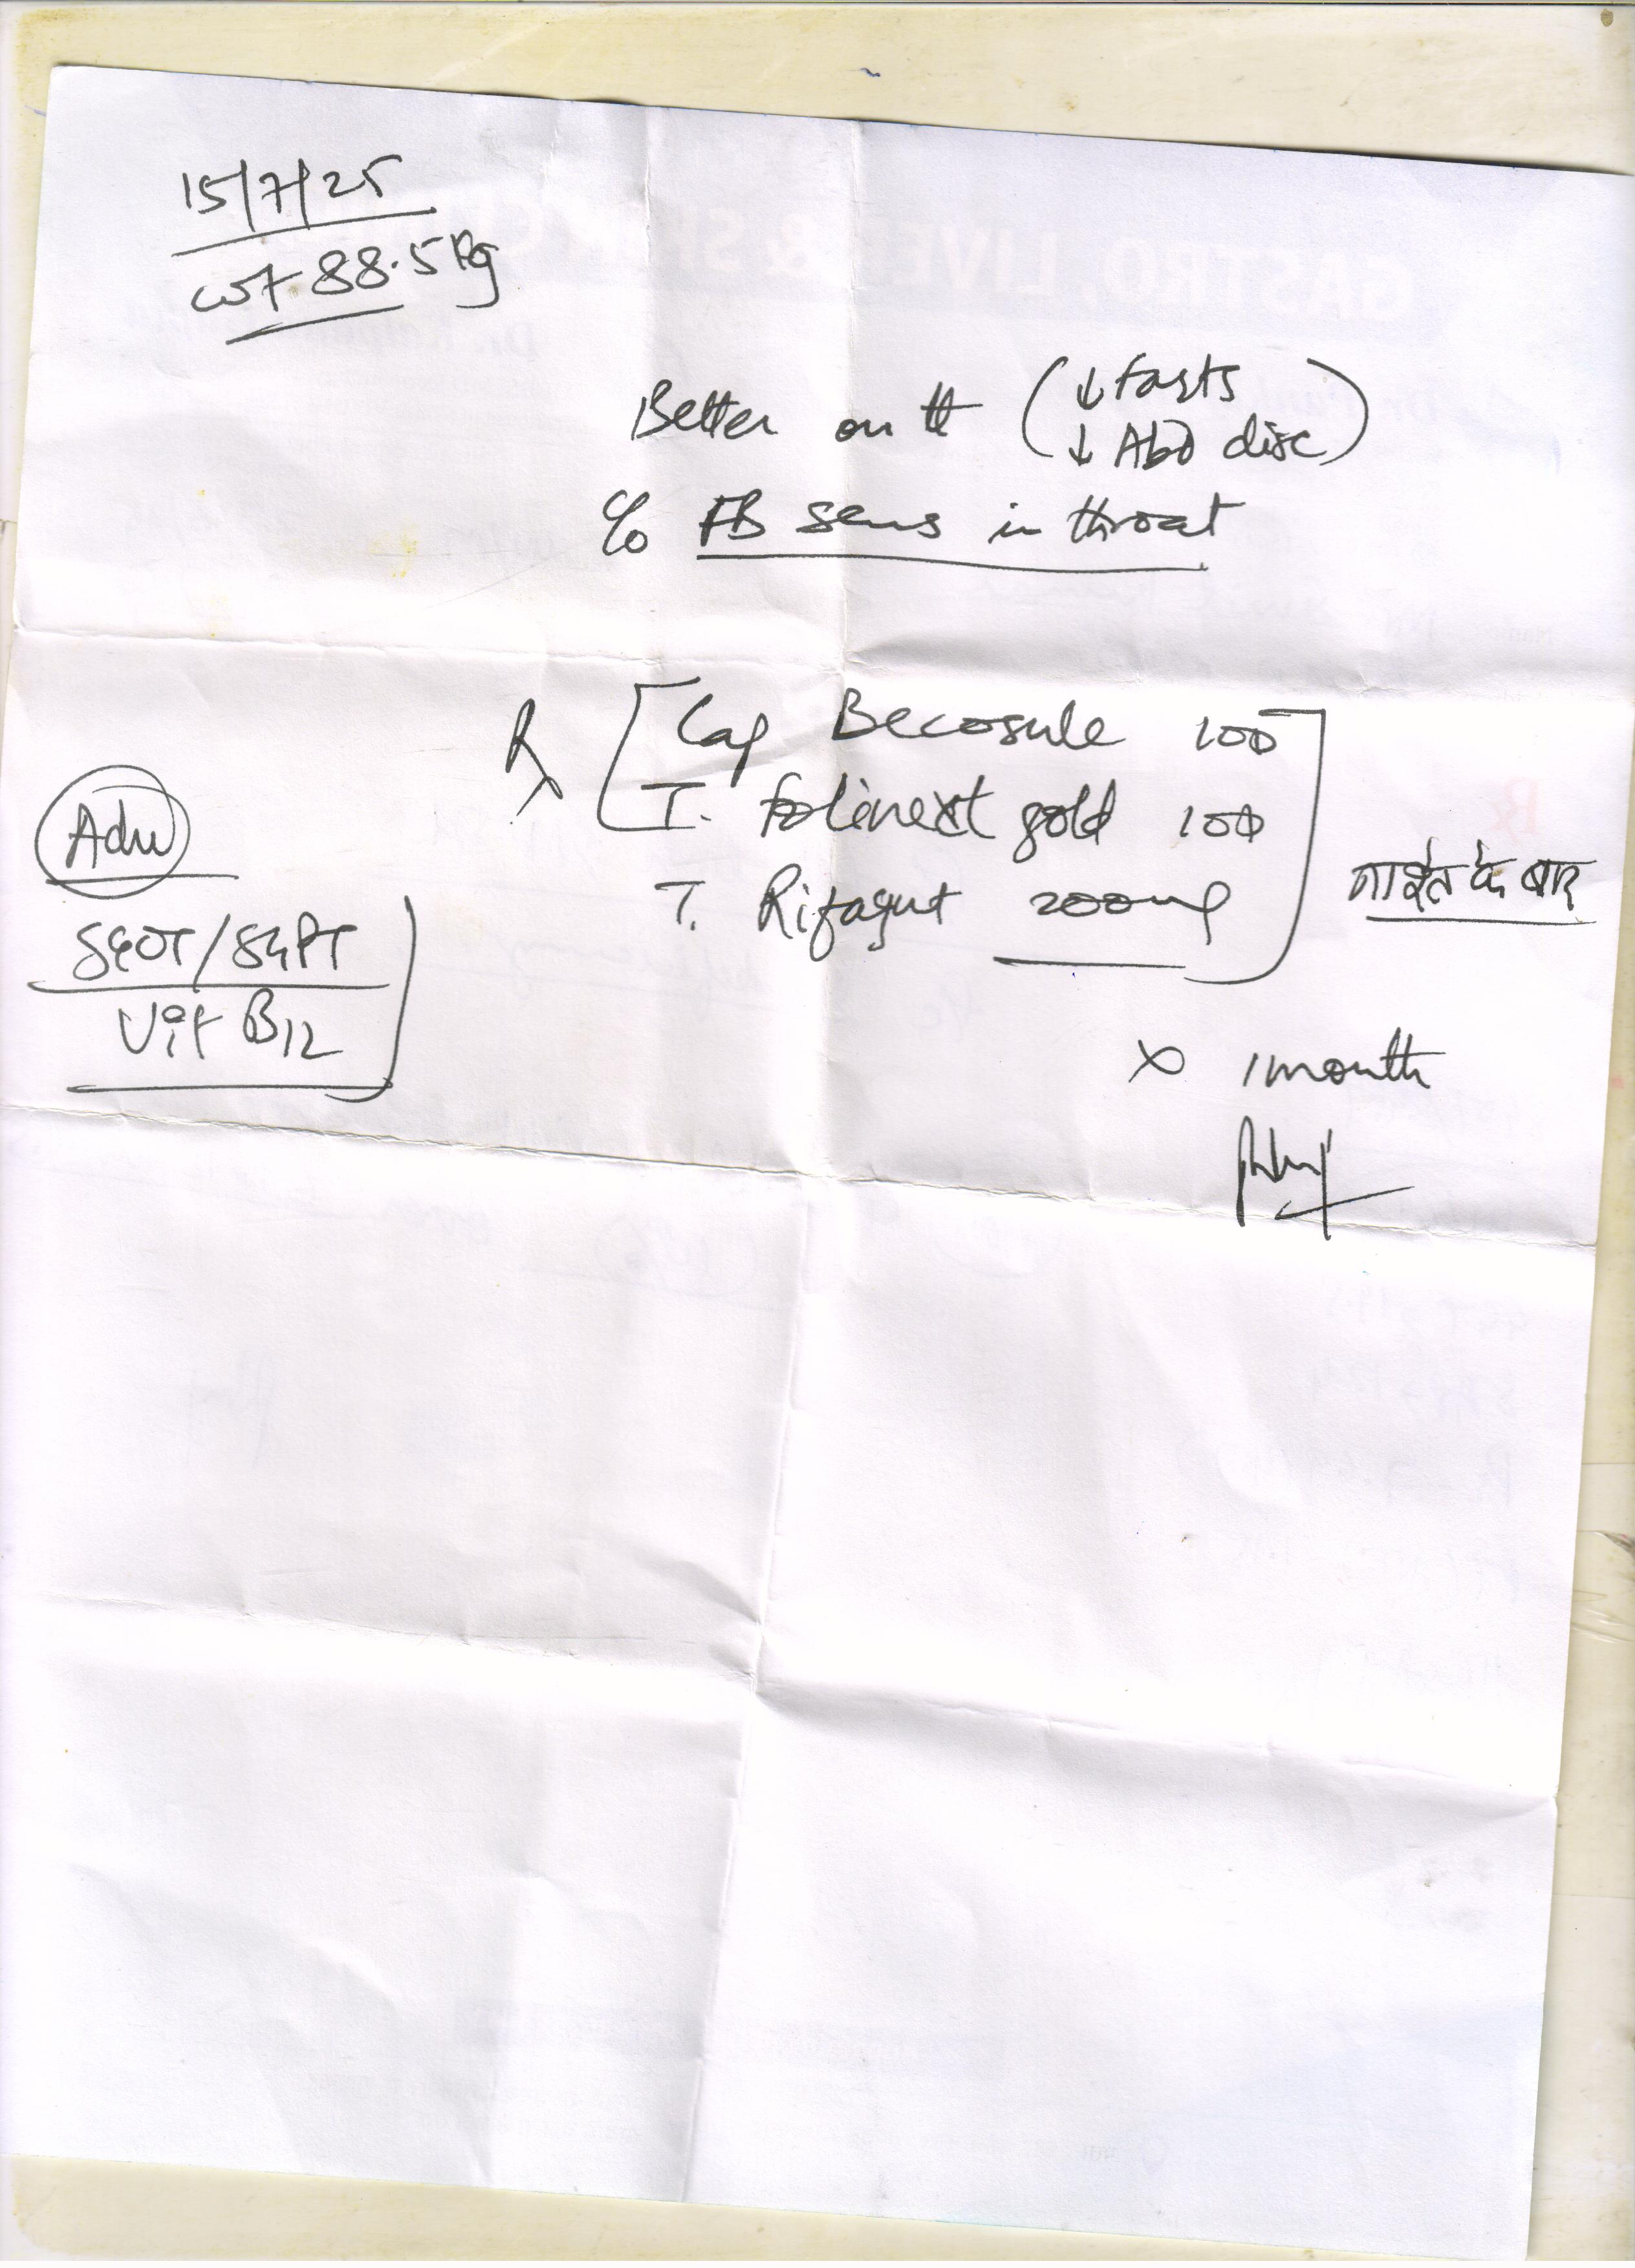 15/7/25
wt 88.5 Kg
Better on tt (↓ farts
↓ Abd disc)
c/o FB sens in throat
Rx Cap Becosule 100
T. Folinext gold 100
T. Rifagut 200mg
नाश्ते के बाद
x 1 month
Adv
SGOT/SGPT
Vit B12